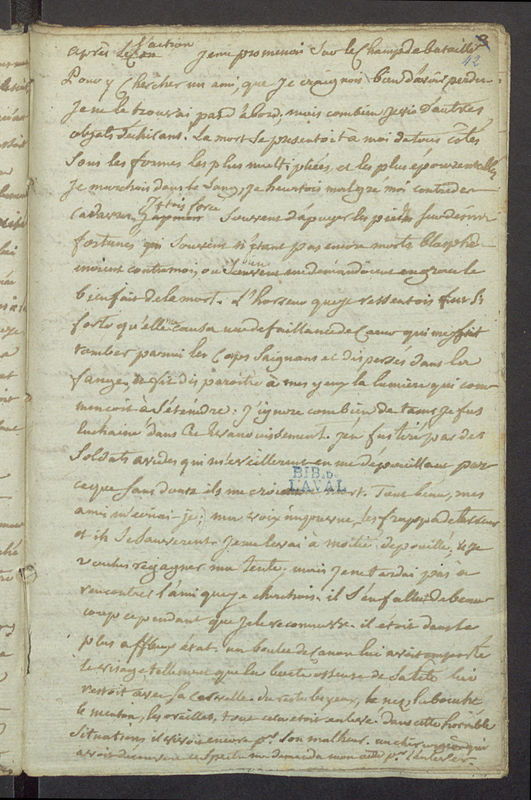 42
après l'action je me promenois sur le champ de bataille
Pour y chercher un ami, que je craignois bien d'avoir perdu.
Je ne le trouvai pas d'abord. mais combien je vis d'autres
objets déchirans. La mort se presentoit à moi de tous côtés
sous les formes les plus multipliées, et les plus épouventables
Je marchois dans le sang, je heurtois malgré moi contre des
cadavres, J'etois forcé souvent d'apuyer les pieds sur des in-
fortunés qui souvent n'étant pas encore morts blasphe-
moient contre moi, ou bien me demandoient en grace le
bienfait de la mort. L'horreur que je ressentois fut si
forte qu'elle me causa une defaillance de coeur qui me fit
tomber parmi les corps saignans et disperses dans la
fange, et fit disparoitre à mes yeux la lumiere qui com-
mencoit à s'éteindre. J'ignore combien de tems je fus
enchainé dans cet evanouissement. j'en fus tiré par des
soldats avides qui m'eveillerent en me dépouillant par-
ceque sans doute ils me croioient mort. Tout beau, mes
amis m'ecriai-je; ma voix imprevue les frappa de terreur
et ils se sauverent. Je me levai à moitié depouillé, et je
voulus regagner ma tente. mais je ne tardai pas à
rencontrer l'ami que je cherchois. il s'en falloit de beau-
coup cependant que je le reconnusse. il etoit dans le
plus affreux état. un boulet de canon lui avoit emporté
le visage tellement que la boete osseuse de sa tete lui
restoit avec sa cervelle. du reste les yeux, le nez, la bouche
le menton, les oreilles, tout cela etoit enlevé. Dans cette horrible
situation, il vivoit encore pr. son malheur. un chirurgien qui
avoit decouvert ce spectacle me demanda mon aide pr. l'enlever.
BIB. DE
LAVAL